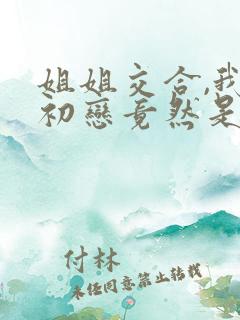 姐姐交合,我
初戀竟然是
付林
未经同意禁止转载